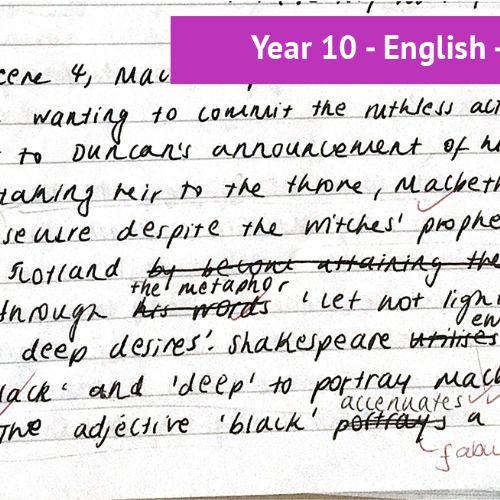 Year 10 - English -
cene 4, Mac
wanting to commit the ruthless act
to Duncan's announcement of h
taking heir to the throne, Macbeth
secure despite the witches' prophe
Scotland by become attaining the
the metaphor
through his words 'Let not light
en
deep desires'. Shakespeare utilises
lack' and 'deep' to portray Macb
accenuates
The adjective 'black' portrays a
fabu